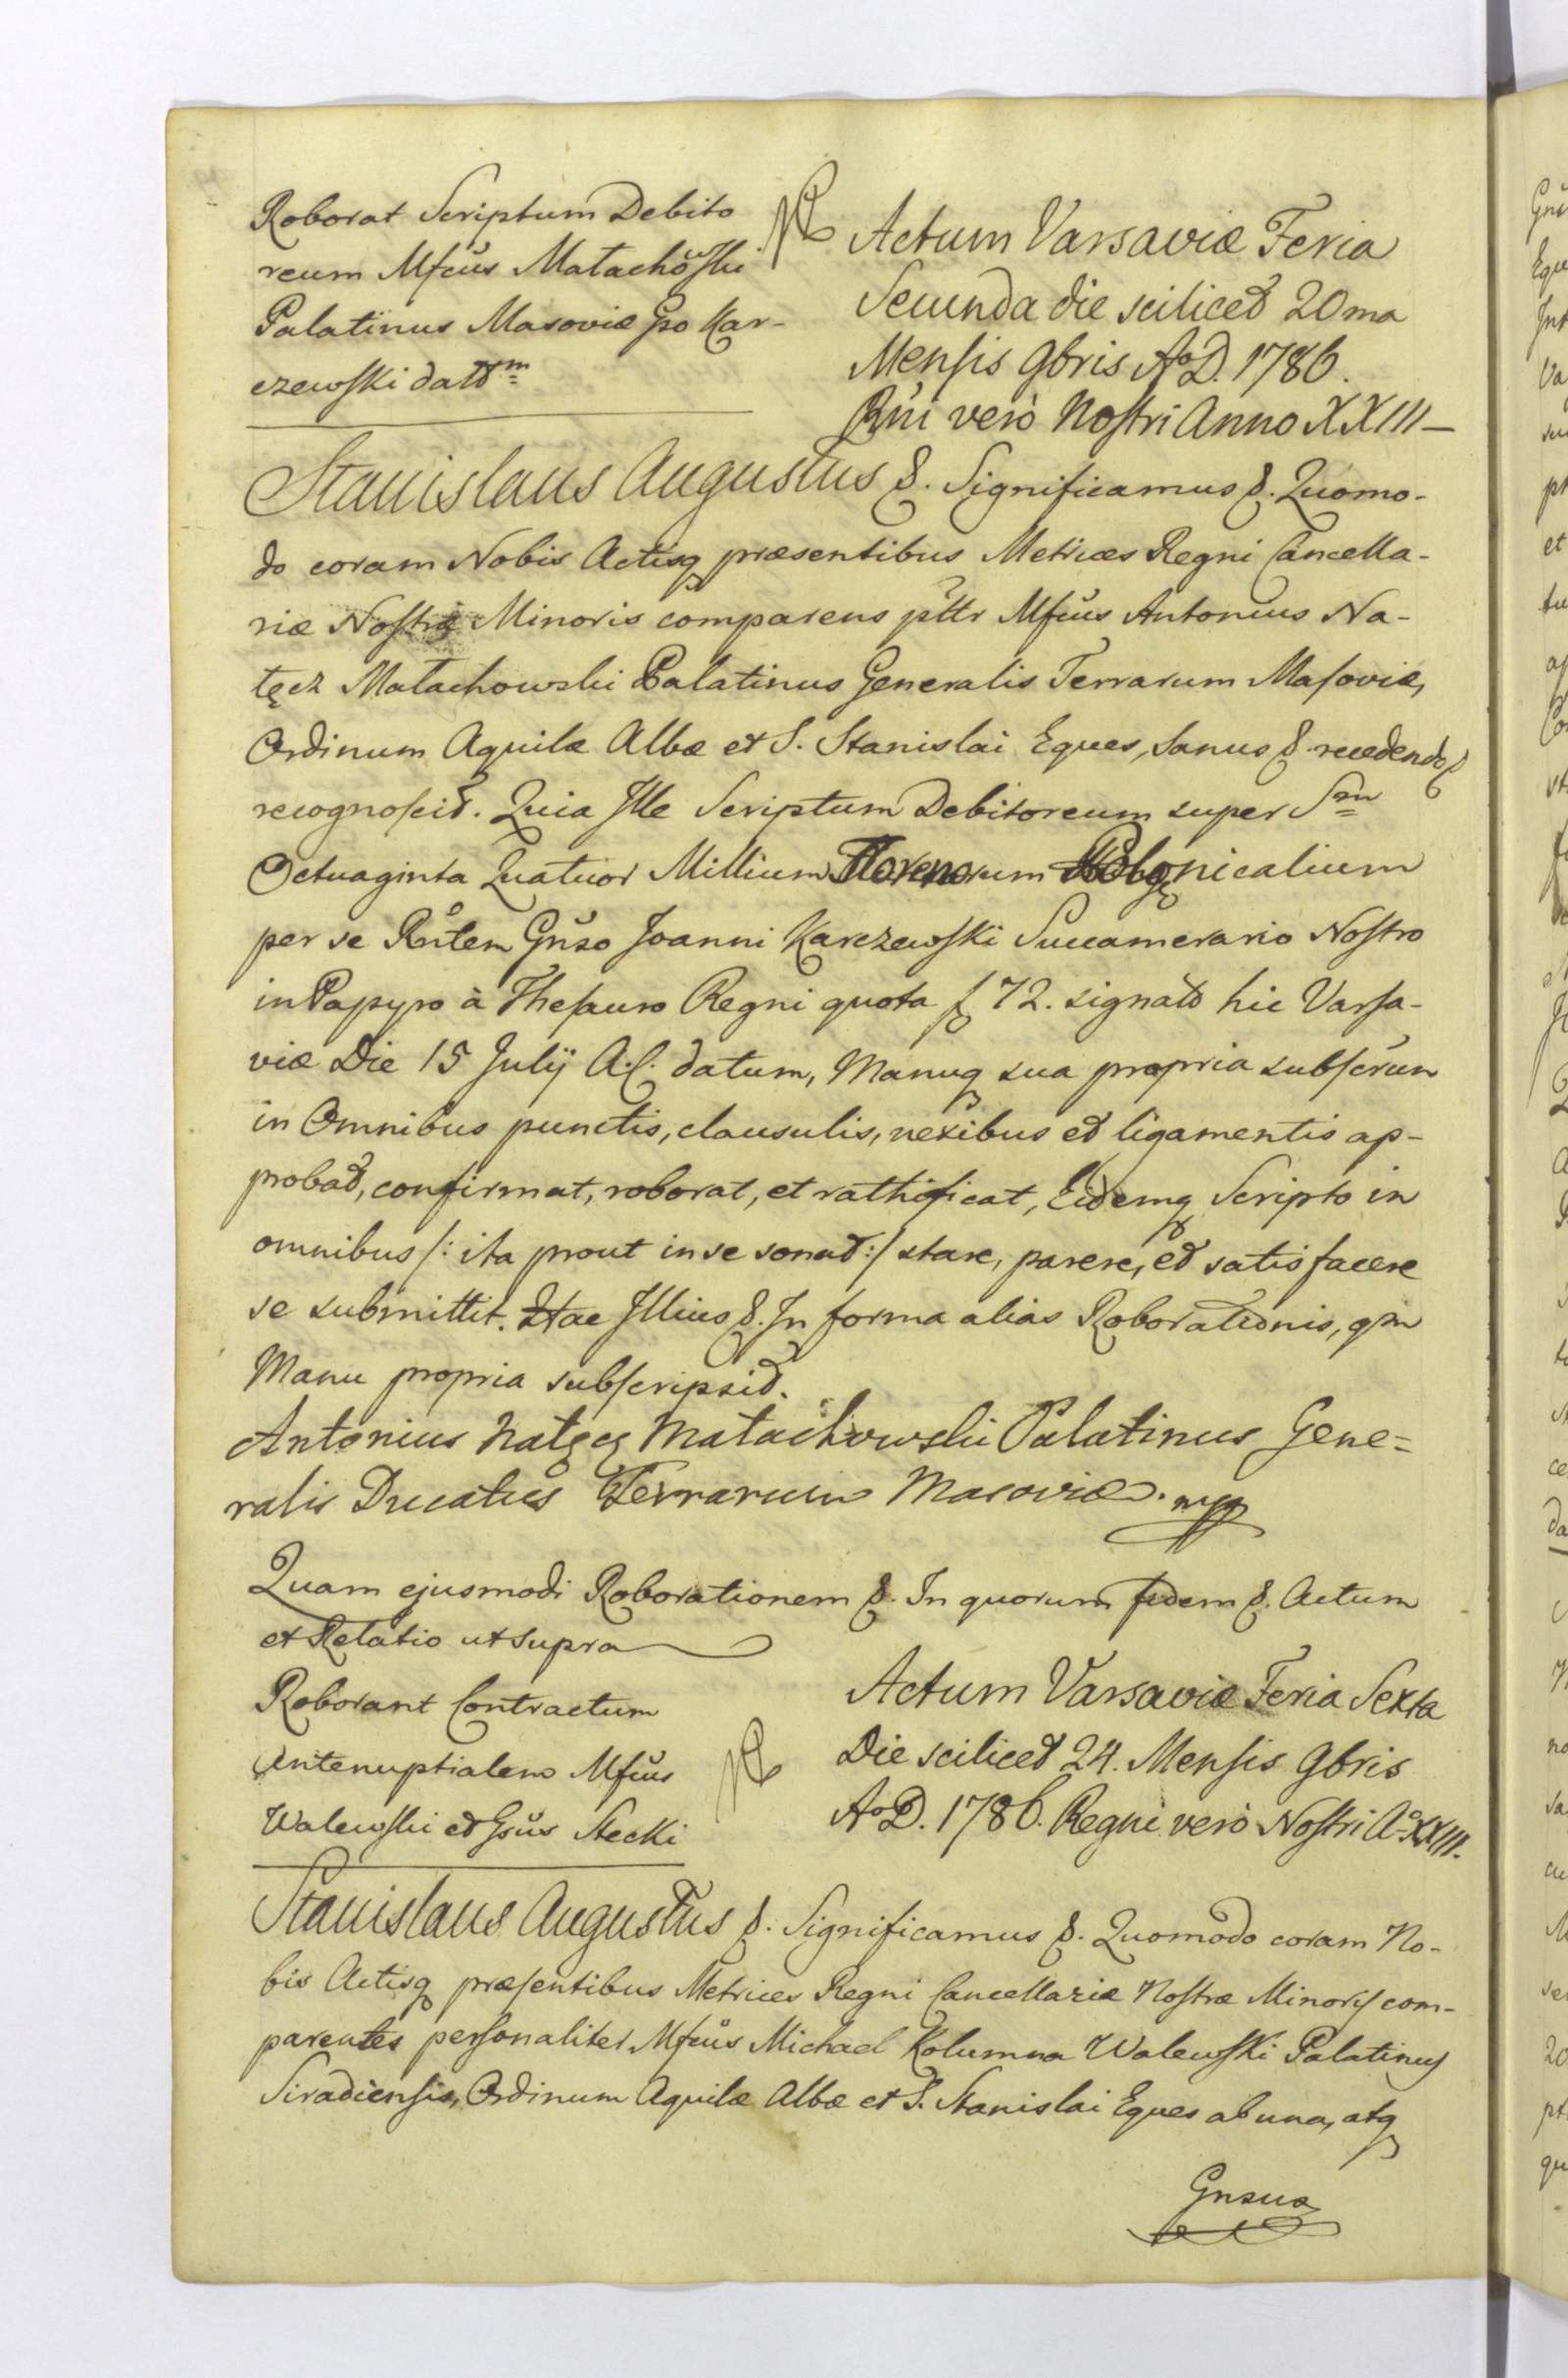 Roborat Scriptum Debito
reum Mfcus Małachowski
Palatinus Masoviæ Gso Kar-
czewski datt^m
Actum Varsaviæ Feria
Secunda die scilicet 20ma
Mensis 9bris A°D. 1786.
Rni verò Nostri Anno XXIII
Stanislaus Augustus &. Significamus &. Quomo-
do coram Nobis Actisq præsentibus Metrices Regni Cancella-
riæ Nostræ Minoris comparens pttr Mfcus Antonius Na-
tęcz Małachowski Palatinus Generalis Terrarum Masoviæ,
Ordinum Aquilæ Albæ et S. Stanislai Eques, sanus &. recedendo &
recognoscit. Quia Ille Scriptum Debitoreum super Sm
Octuaginta Quatuor Millium Florenorum Polonicalium
per se Rntem Gnso Joanni Karczewski Succamerario Nostro
in Papyro à Thesauro Regni quota f 72. signato hic Varsa-
viæ Die 15 Julij A.C. datum, Manuq sua propria subscrum
in Omnibus punctis, clausulis, nexibus et ligamentis ap-
probat, confirmat, roborat, et rathificat, Eidemq Scripto in
omnibus /: ita prout in se sonat :/ stare, parere, et satisfacere
se submittit. Hac Illius &. In forma alias Roborationis, qm
Manu propria subscripsit.
Antonius Natęcz Małachowski Palatinus Gene=
ralis Ducatus Terrarum Masoviæ. mpp
Quam ejusmodi Roborationem &. In quorum fidem &. Actum
et Relatio ut supra
Roborant Contractum
Antenuptialem Mfcus
Walewski et Gsus Stecki
Actum Varsaviæ Feria Sexta
Die scilicet 24. Mensis 9bris
A°D. 1786. Regni verò Nostri A° XXIII.
Stanislaus Augustus &. Significamus &. Quomodo coram No-
bis Actisq præsentibus Metrices Regni Cancellariæ Nostræ Minoris com-
parentes personaliter Mfcus Michael Kolumna Walewski Palatinus
Siradiensis, Ordinum Aquilæ Albæ et S. Stanislai Eques ab una, atq
Gnsus